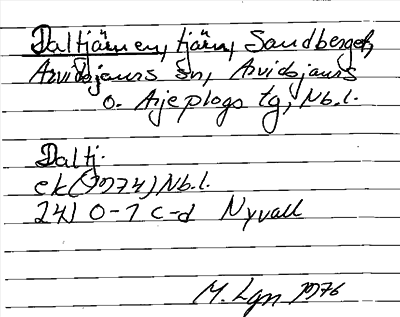 Daltjärnen, tjärn, Sandberget,
Arvidsjaurs sn, Arvidsjaurs
o. Arjeplogs tg, Nb. l.
Daltj.
ek (1974) Nb. l.
24I 0-1 c-d Nyvall
M. Lgn 1976